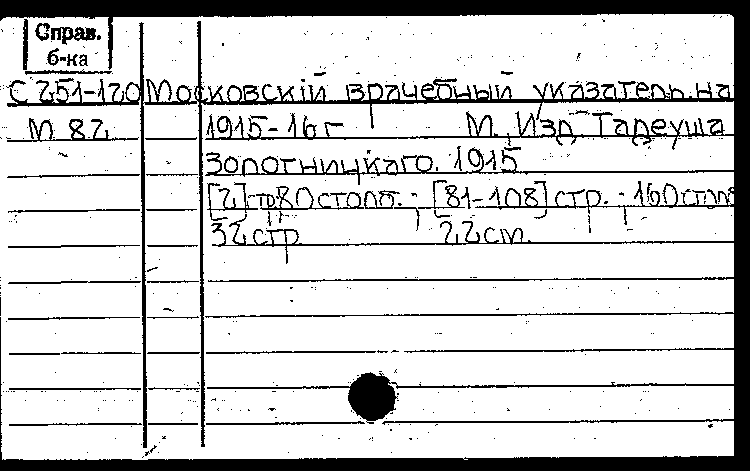 Справ.
б-ка
С 251-120 Московскiй врачебный указатель на
М 82 1915-16 г М., Изд. Тадеуша
Золотницкаго. 1915
[2] стр 80 столб. ; [81-108] стр. ; 160 столб
32 стр 22 см.